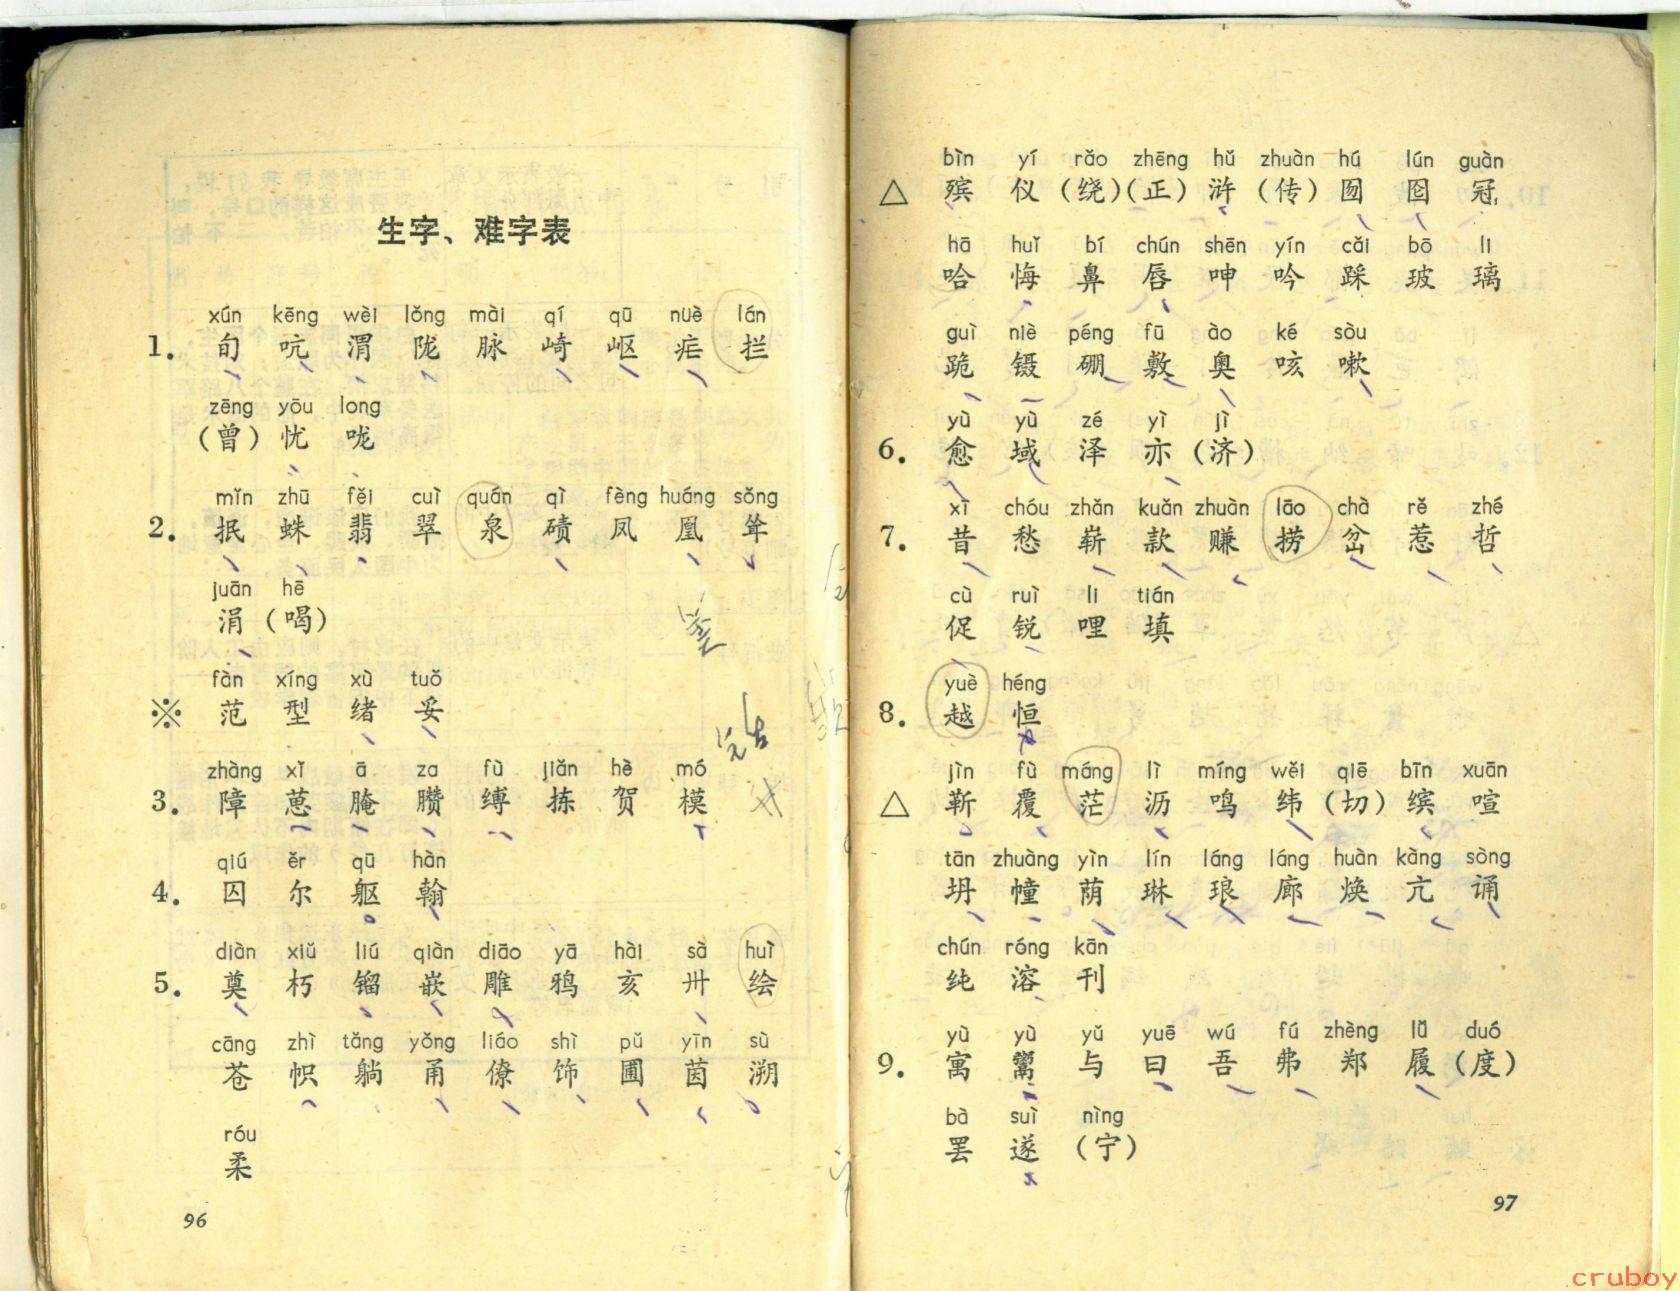 生字、难字表
xún kēng wèi lǒng mài qí qū nüè lán
1. 旬 吭 渭 陇 脉 崎 岖 疟 拦
zēng yōu long
(曾) 忧 咙
mǐn zhū fěi cuì quán qì fèng huáng sǒng
2. 抿 蛛 翡 翠 泉 碛 凤 凰 耸
juān hē
涓 (喝)
fàn xíng xù tuǒ
※ 范 型 绪 妥
zhàng xǐ ā za fù jiǎn hè mó
3. 障 葸 腌 臜 缚 拣 贺 模
qiú ěr qū hàn
4. 囚 尔 躯 翰
diàn xiǔ liú qiàn diāo yā hài sà huì
5. 奠 朽 镏 嵌 雕 鸦 亥 卅 绘
cāng zhì tǎng yǒng liáo shì pǔ yīn sù
苍 帜 躺 甬 僚 饰 圃 茵 溯
róu
柔
96
bìn yí rǎo zhēng hǔ zhuàn hú lún guàn
△ 殡 仪 (绕) (正) 浒 (传) 囫 囵 冠
hā huǐ bí chún shēn yín cǎi bō li
哈 悔 鼻 唇 呻 吟 踩 玻 璃
guì niè péng fū ào ké sòu
跪 镊 硼 敷 奥 咳 嗽
yù yù zé yì jì
6. 愈 域 泽 亦 (济)
xì chóu zhǎn kuǎn zhuàn lāo chà rě zhé
7. 昔 愁 崭 款 赚 捞 岔 惹 哲
cù ruì li tián
促 锐 哩 填
yuè héng
8. 越 恒
jìn fù máng lì míng wěi qiē bīn xuān
△ 靳 覆 茫 沥 鸣 纬 (切) 缤 喧
tān zhuàng yìn lín láng láng huàn kàng sòng
坍 幢 荫 琳 琅 廊 焕 亢 诵
chún róng kān
纯 溶 刊
yù yù yǔ yuē wú fú zhèng lǚ duó
9. 寓 鬻 与 曰 吾 弗 郑 履 (度)
bà suì nìng
罢 遂 (宁)
97
cruboy